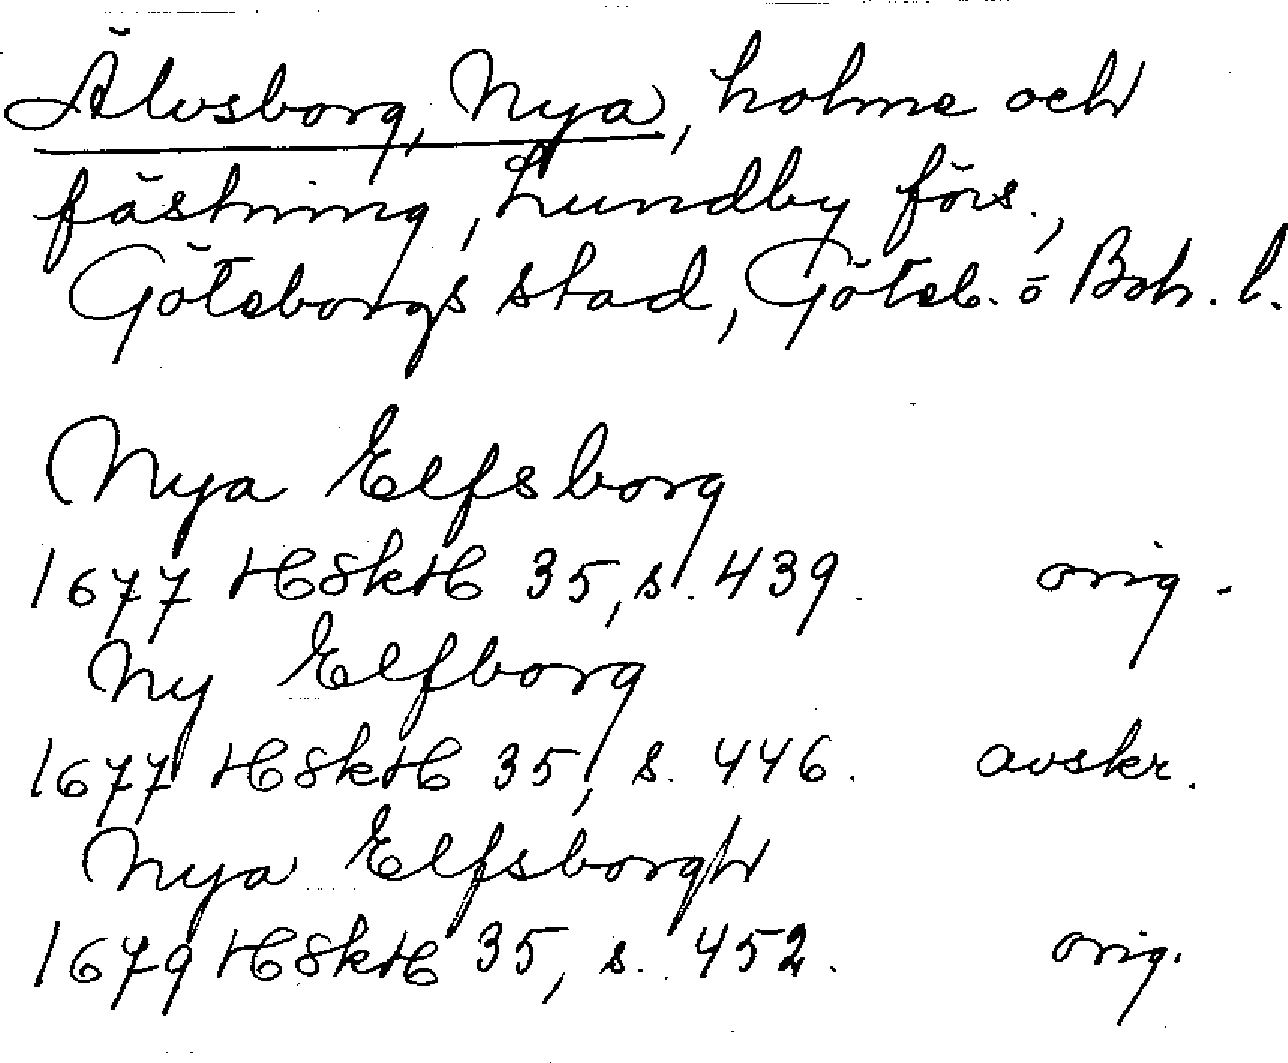 Älvsborg, Nya, holme och
fästning, Lundby förs.,
Göteborgs stad, Göteb. o Boh. l.
Nya Elfsborg
1677 HSkH 35, s. 439. orig.
Ny Elfborg
1677 HSkH 35, s. 446. avskr.
Nya Elfsborgh
1679 HSkH 35, s. 452. orig.